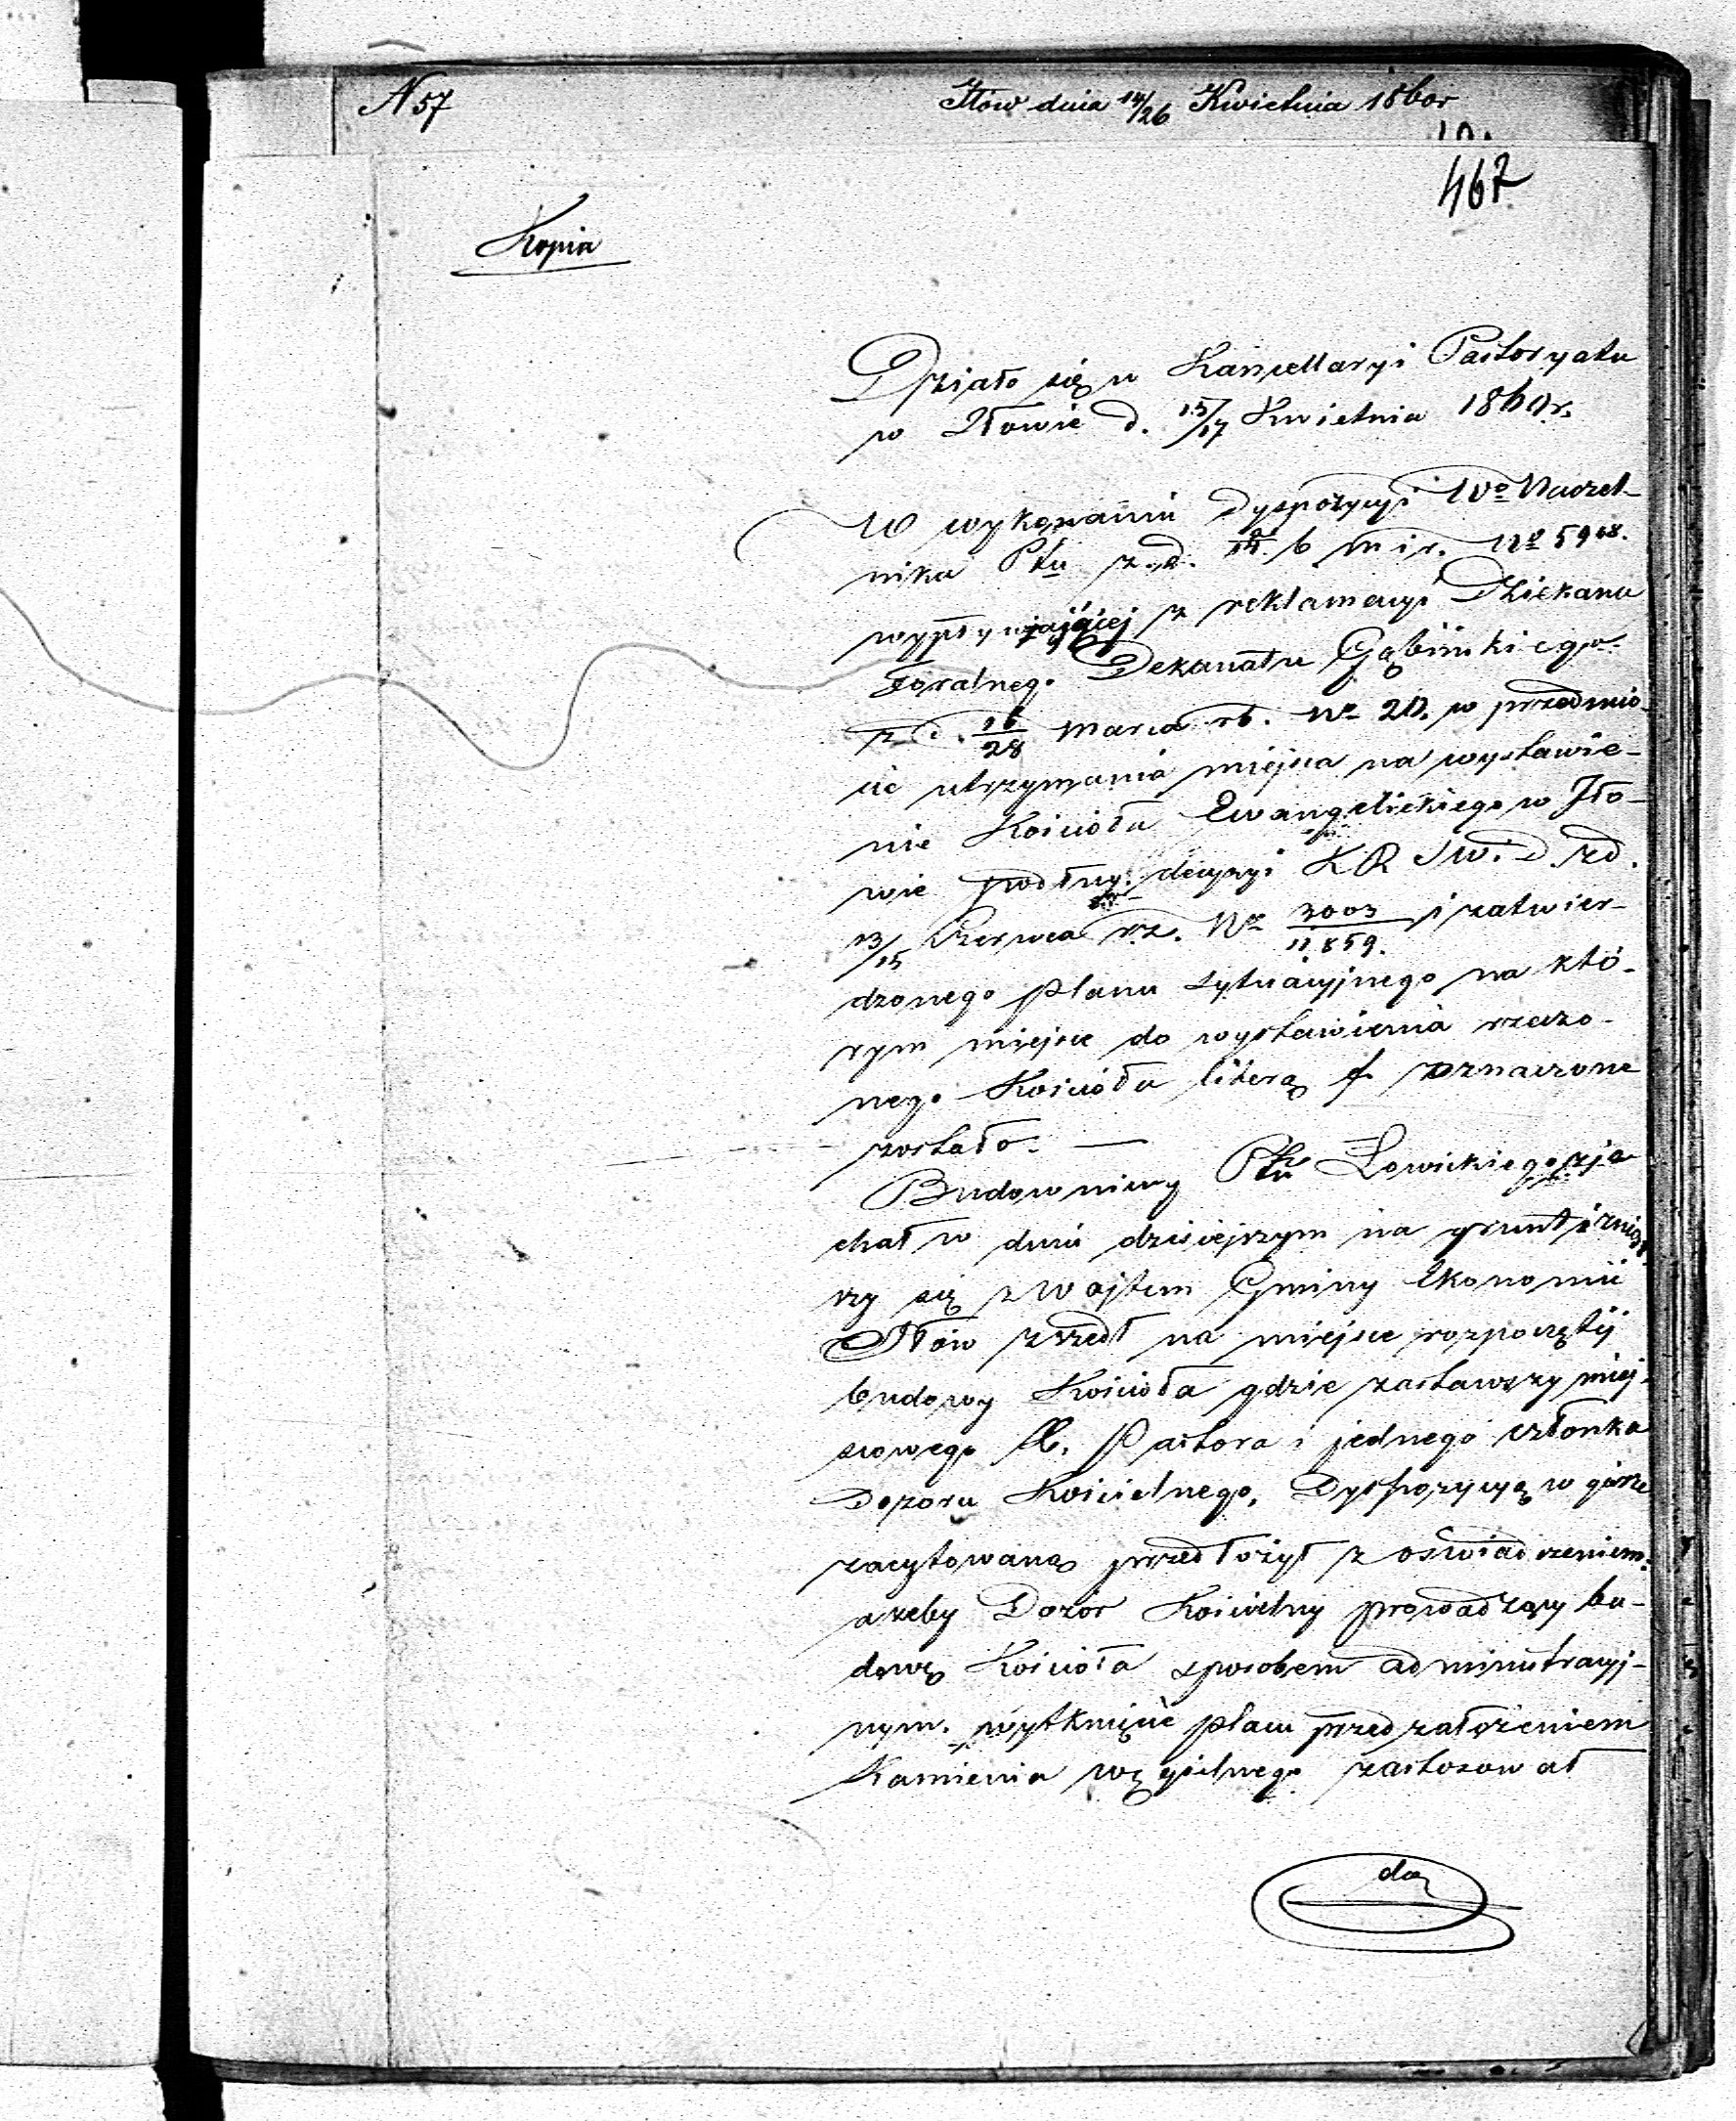 N 57 Iłow dnia 14/26 Kwietnia 1860r
10.
467
Kopia
Działo się w Kancellaryi Pastoryatu
w Iłowie d. 15/17 Kwietnia 1860r.
W wykonaniu Dyspozycyi Wo Naczel-
nika Ptu z. d. 6 m i r. No 5908.
wypływającej z reklamacyi Dziekana
Foralnego Dekanatu Gąbińskiego
z d. 16/28 Marca rb. No 20. w przedmio-
cie utrzymania miejsca na wystawie-
nie Kościoła Ewangelickiego w Iło-
wie podług decyzyi K R S W. i D. z d.
3/15 Czerwca rz. No 3003/11859. i zatwier-
dzonego planu sytuacyjnego na któ-
rym miejsce do wystawienia rzeczo-
nego Kościoła literą f. oznaczone
zostało. —
Budowniczy Ptu Łowickiego zje
chał w dniu dzisiejszym na grunt i zniosł
szy się z Wojtem Gminy Ekonomii
Iłów zszedł na miejsce rozpoczętij
budowy Kościoła gdzie zastawszy miej-
scowego X. Pastora i jednego członka
Dozoru Kościelnego, Dyspozycyą w górze
zacytowaną przedłożył z oświadczeniem.
ażeby Dozór Kościelny prowadzący bu-
dowę Kościoła sposobem administracyj-
nym. wytknięcie placu przed założeniem
Kamienia węgielnego zastosował
do